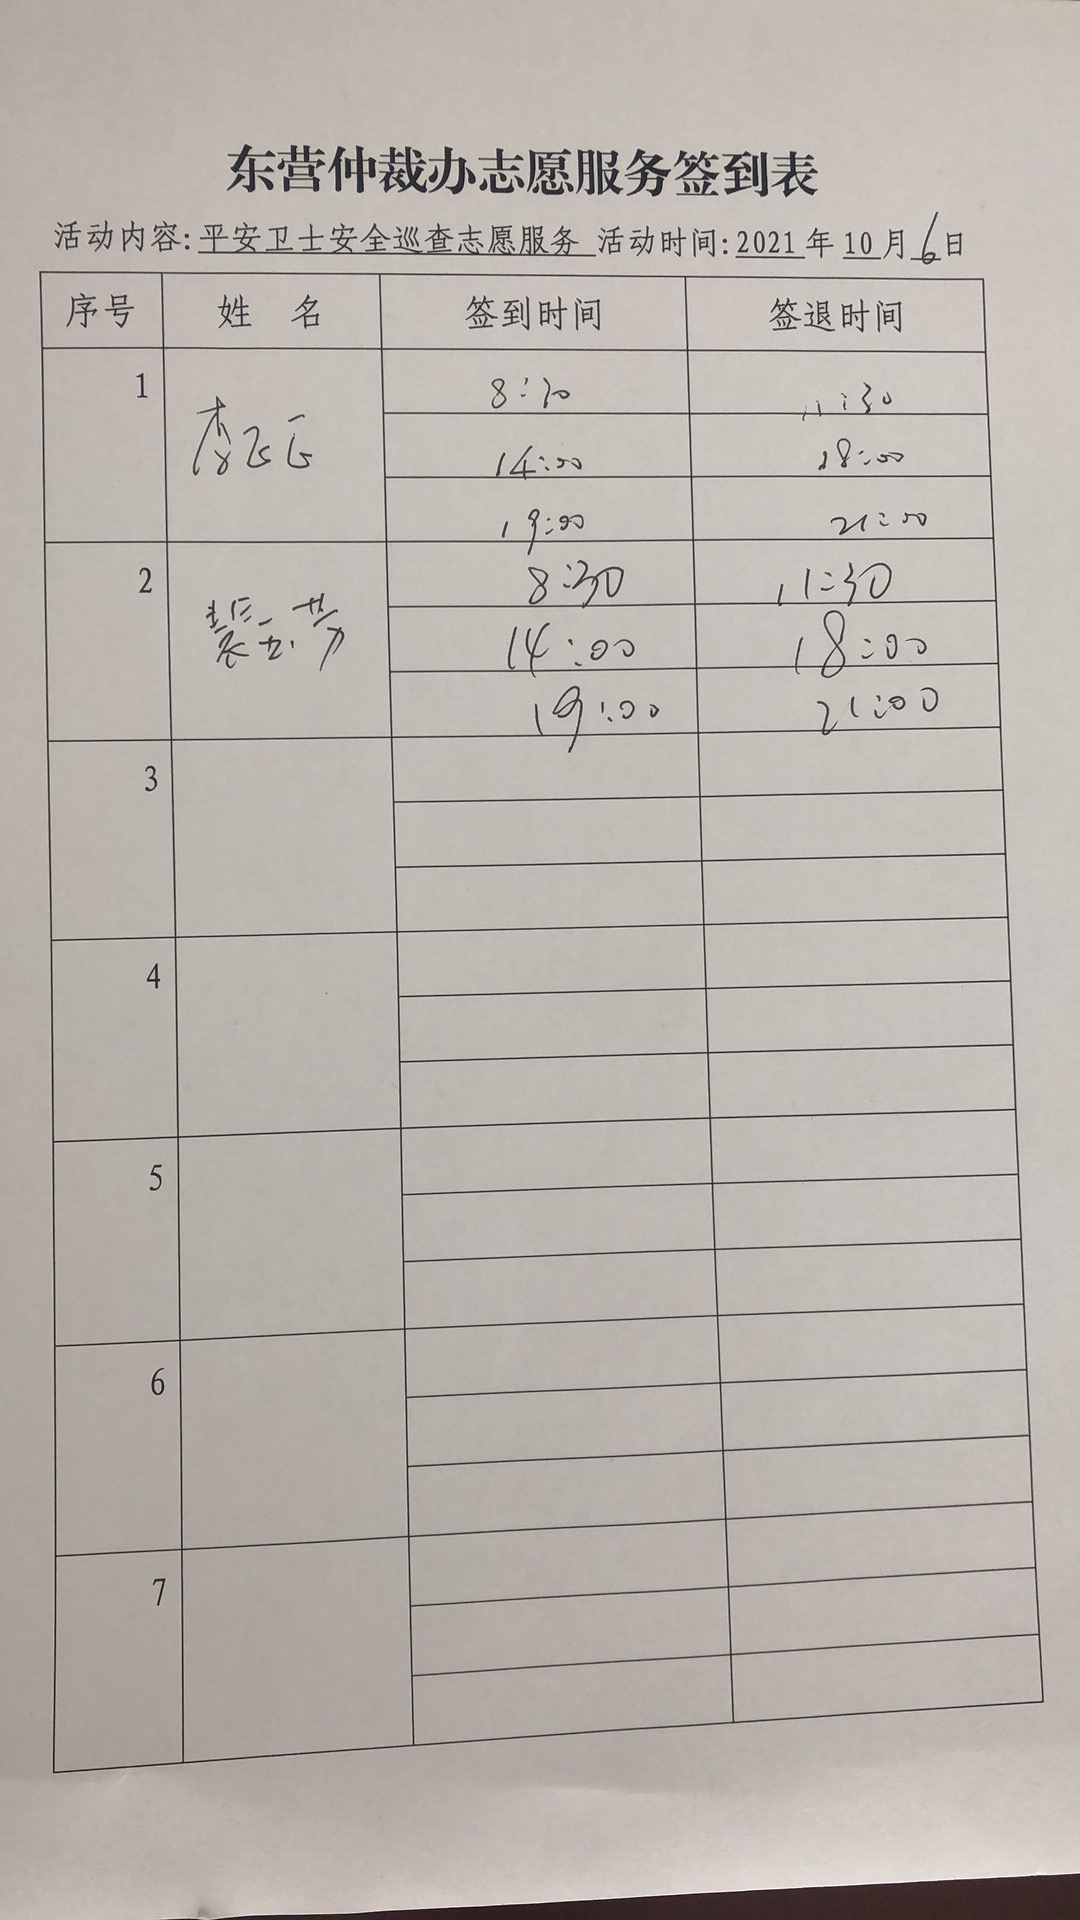 东营仲裁办志愿服务签到表
活动内容:平安卫士安全巡查志愿服务 活动时间:2021年10月6日
序号 姓 名 签到时间 签退时间
1 李 8:30 11:30
14:00 18:00
19:00 21:00
2 8:30 11:30
14:00 18:00
19:00 21:00
3
4
5
6
7